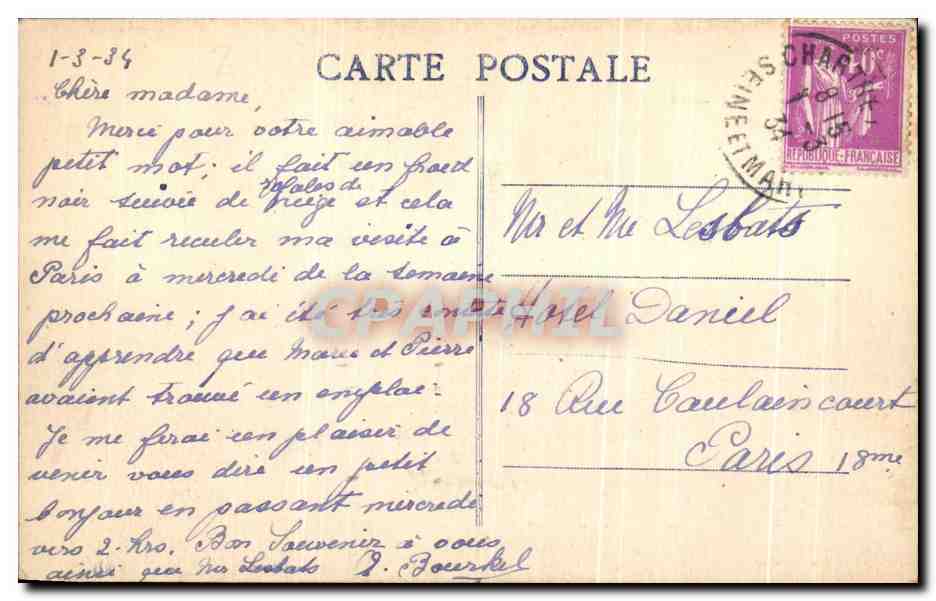 1-3-34
CARTE POSTALE
POSTES
40c
RÉPUBLIQUE-FRANÇAISE
SEINE ET MAR
8 15
1 3
34
Chère madame,
Merci pour votre aimable
petit mot; il fait un froid
noir suivie de rafales de neige et cela
me fait reculer ma visite à
Paris à mercredi de la semaine
prochaine; j'ai été très contente
d'apprendre que Marie et Pierre
avaient trouvé un emploi.
Je me ferai un plaisir de
venir vous dire un petit
bonjour en passant mercredi
vers 2 hrs. Bon Souvenir à vous
ainsi que Mr Lesbats
Mr et Me Lesbats
Hotel Daniel
18 Rue Caulaincourt
Paris 18me
CPAPHIL